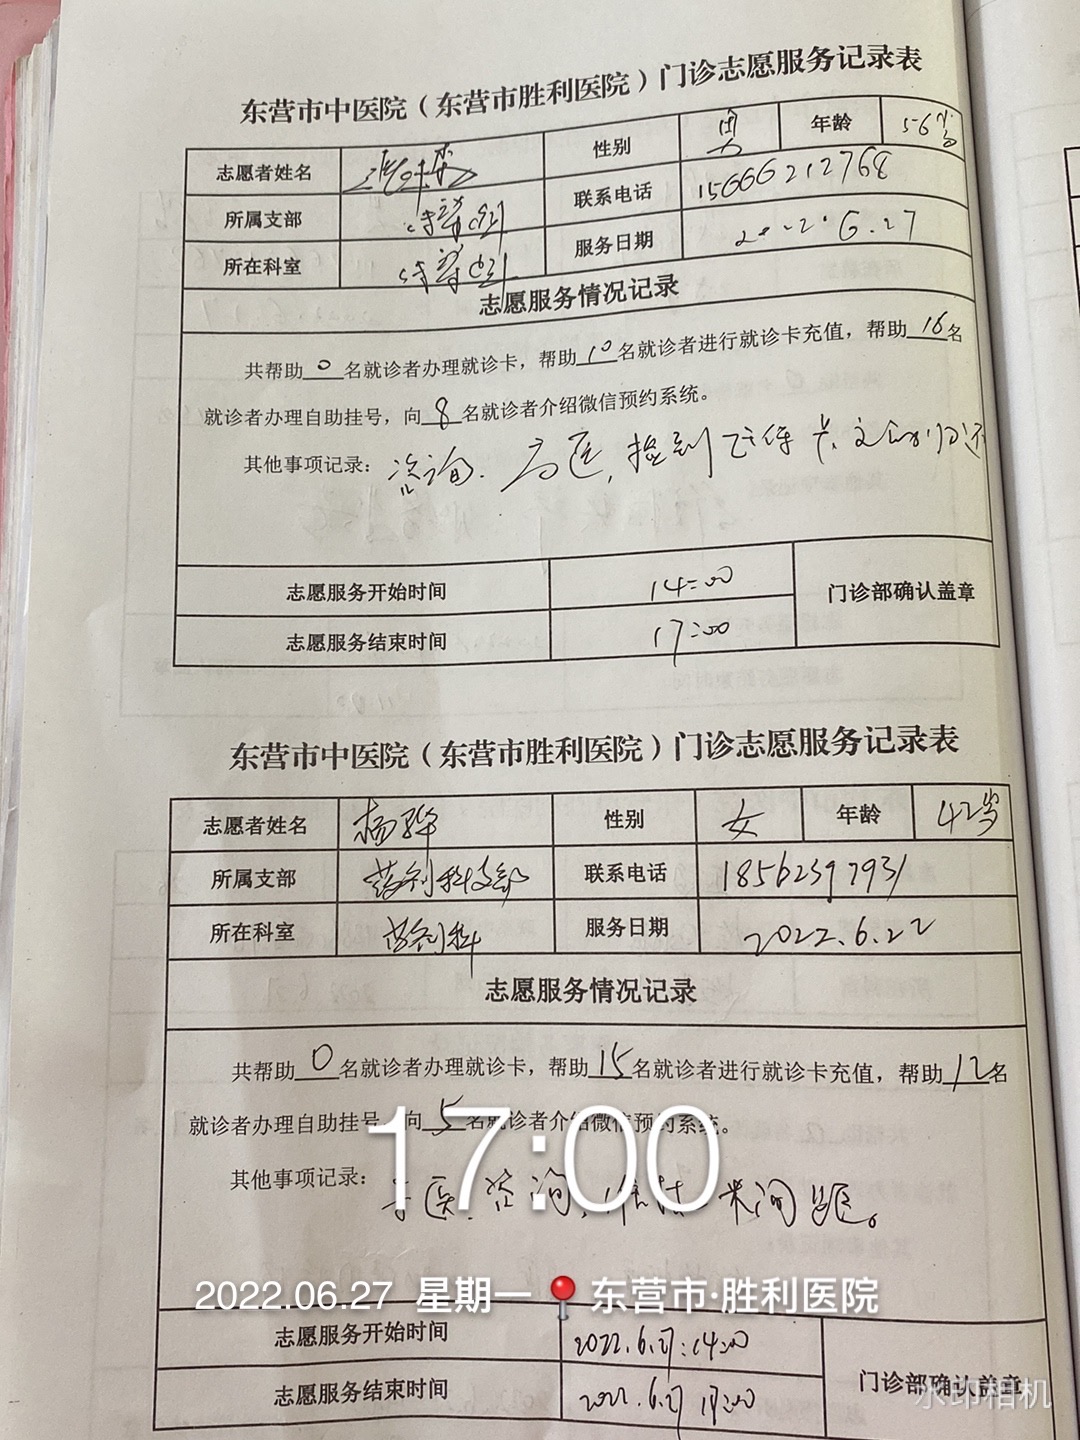 东营市中医院（东营市胜利医院）门诊志愿服务记录表
志愿者姓名 性别 男 年龄 56岁
所属支部 联系电话 15666212768
所在科室 服务日期 2022.6.27
志愿服务情况记录
共帮助 0 名就诊者办理就诊卡，帮助 10 名就诊者进行就诊卡充值，帮助 16 名
就诊者办理自助挂号，向 8 名就诊者介绍微信预约系统。
其他事项记录：咨询.
志愿服务开始时间 14:00 门诊部确认盖章
志愿服务结束时间 17:00
东营市中医院（东营市胜利医院）门诊志愿服务记录表
志愿者姓名 杨骅 性别 女 年龄 42岁
所属支部 药剂科支部 联系电话 18562397931
所在科室 药剂科 服务日期 2022.6.22
志愿服务情况记录
共帮助 0 名就诊者办理就诊卡，帮助 15 名就诊者进行就诊卡充值，帮助 12 名
就诊者办理自助挂号，向 5 名就诊者介绍微信预约系统。
17:00
其他事项记录：导医.咨询,
2022.06.27 星期一 东营市·胜利医院
志愿服务开始时间 2022.6.27:14:00 门诊部确认盖章
志愿服务结束时间 2022.6.27 17:00
水印相机